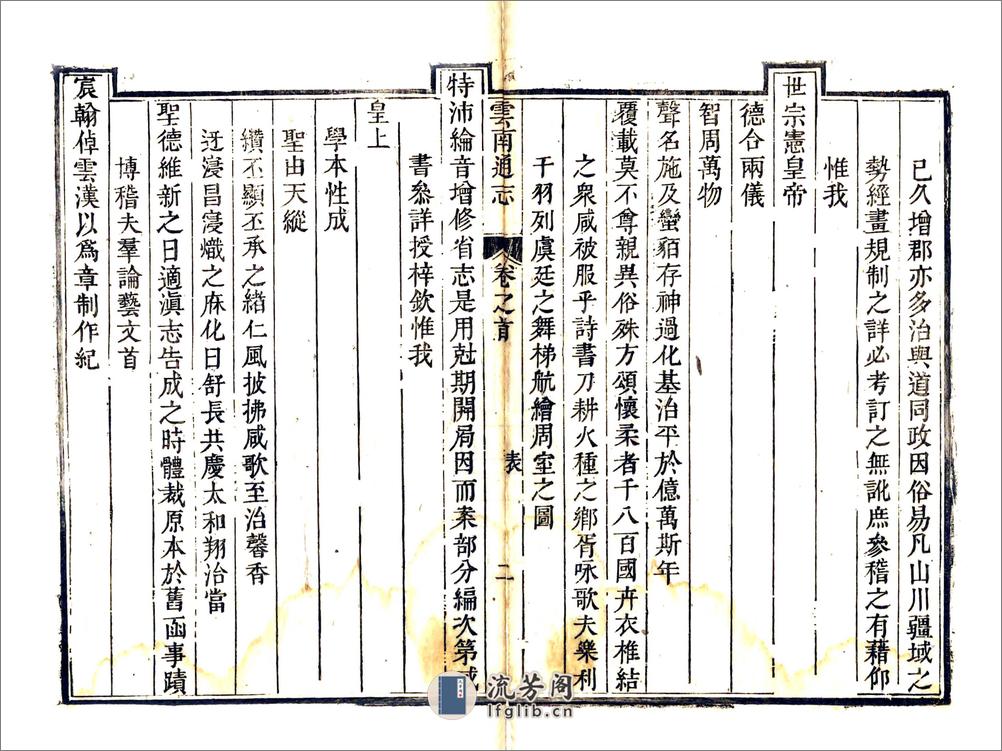 已久增郡亦多治與道同政因俗易凡山川疆域之
勢經畫規制之詳必考訂之無訛庶參稽之有藉仰
惟我
世宗憲皇帝
德合兩儀
智周萬物
聲名施及蠻貊存神過化基治平於億萬斯年
覆載莫不尊親異俗殊方頌懷柔者千八百國卉衣椎結
之衆咸被服乎詩書刀耕火種之鄉胥咏歌夫樂利
干羽列虞廷之舞梯航繪周室之圖
雲南通志
卷之首
表
二
特沛綸音增修省志是用尅期開局因而彚部分編次第成
書叅詳授梓欽惟我
皇上
學本性成
聖由天縱
纘丕顯丕承之緒仁風披拂咸歌至治馨香
迓寖昌寖熾之庥化日舒長共慶太和翔洽當
聖德維新之日適滇志告成之時體裁原本於舊函事蹟
博稽夫羣論藝文首
宸翰倬雲漢以爲章制作紀
流芳阁
lfglib.cn